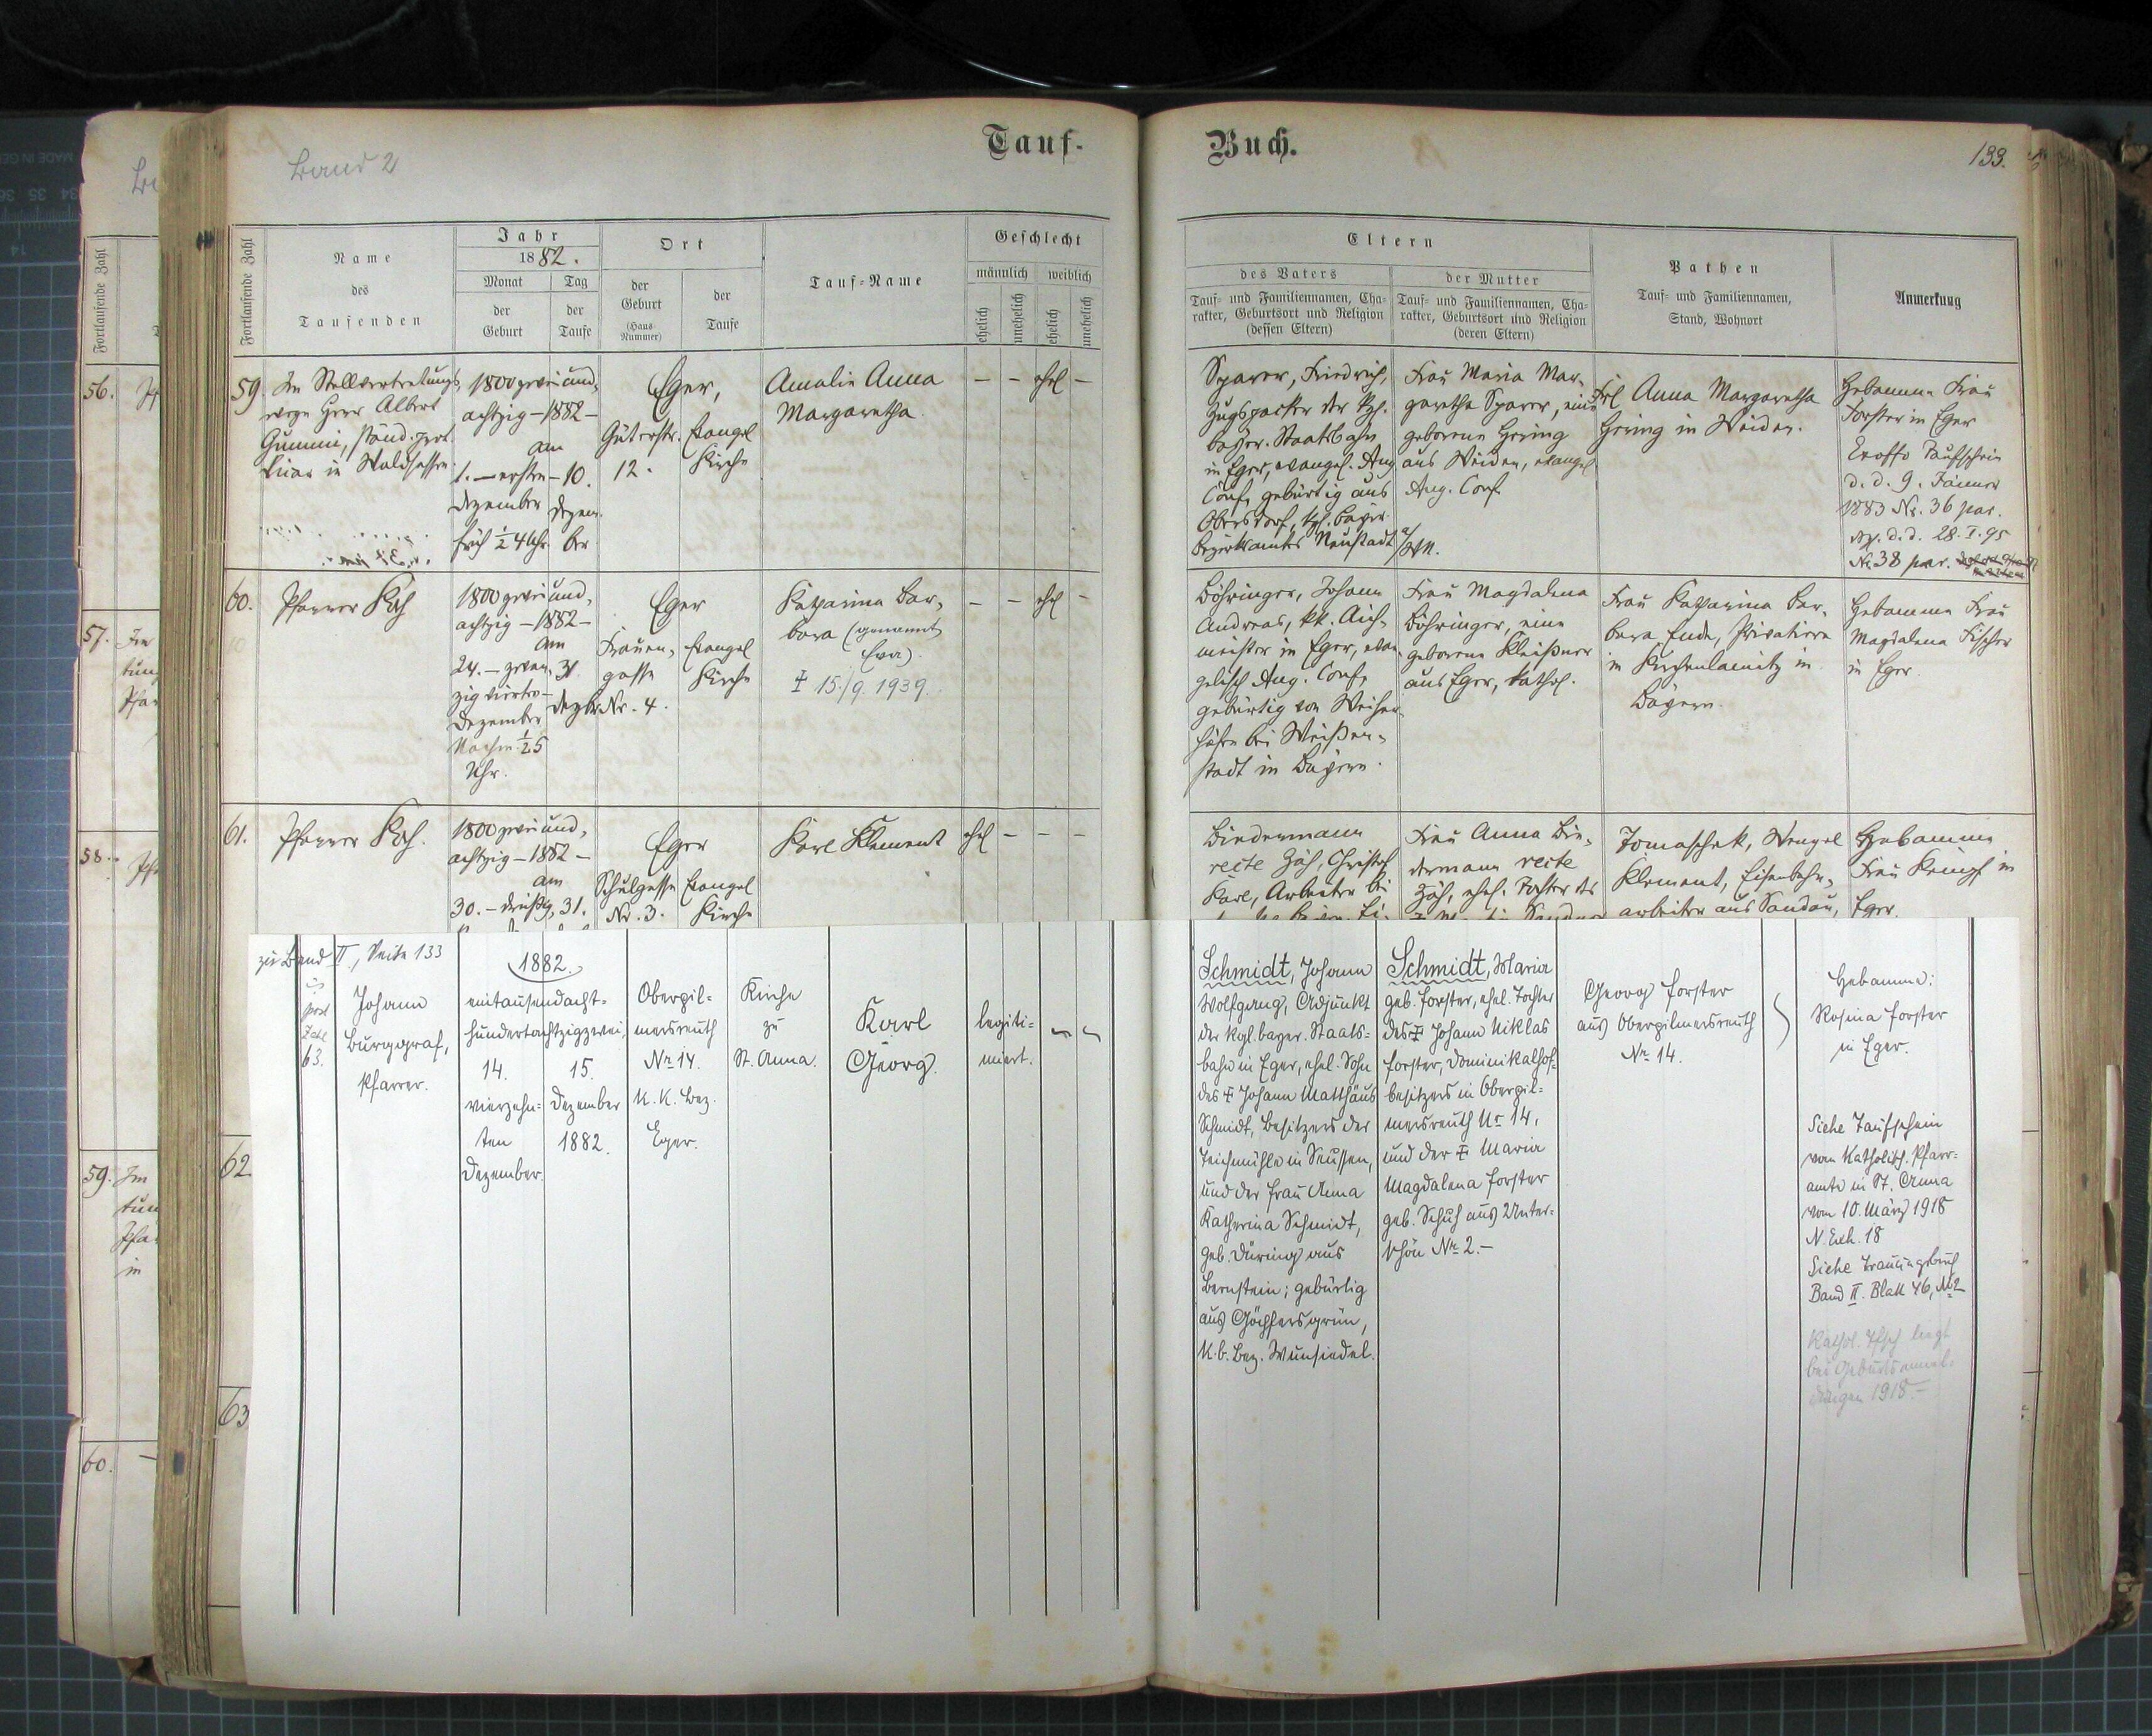 Band 2
Tauf-
Buch.
133.
Fortlaufende Zahl
Name
des
Taufenden
Jahr
1882.
Monat
Tag
der
Geburt
der
Taufe
Ort
der
Geburt
(Haus-
Nummer)
der
Taufe
Tauf-Name
Geschlecht
männlich
weiblich
ehelich
unehelich
ehelich
unehelich
Eltern
des Vaters
Tauf- und Familiennamen, Cha-
rakter, Geburtsort und Religion
(dessen Eltern)
der Mutter
Tauf- und Familiennamen, Cha-
rakter, Geburtsort und Religion
(deren Eltern)
Pathen
Tauf- und Familiennamen,
Stand, Wohnort
Anmerkung
Fortlaufende Zahl
56.
57.
58.
59.
60.
59.
Im Stellvertretungs-
wege Herr Albert
Gummi, ständ.
in Waldsassen
1800 zwei und
achtzig - 1882 -
am
1. - ersten - 10.
Dezember Dezem-
früh ½ 4 Uhr. ber
Eger,
Güterstr.
12.
Evangel
Kirche
Amalia Anna
Margaretha
— — ehel —
Sparrer, Friedrich,
Zugspacker der kgl.
bayer. Staatsbahn
in Eger, evangel. Aug
Conf, gebürtig aus
kgl. bayer.
Bezirksamts Neustadt a/
WN.
Frau Maria Mar-
garetha Sparrer, eine
geborene Hering
aus Weiden, evangel
Aug. Conf.
Frl Anna Margaretha
Hering in Weiden.
Hebamme Frau
Forster in Eger
Taufschein
d. d. 9. Jänner
1883 Nr. 36 par.
d. d. 28. I. 95
Nr. 38 par.
60.
Pfarrer Koch
1800 zwei und
achtzig - 1882 -
am
24. - zwan- 31.
zig vierte -
Dezember Dezbr
Nachm. ½ 5
Uhr.
Eger
Frauen-
gasse
Nr. 4.
Evangel
Kirche
Katharina Bar-
bara (genannt
Eva).
‡ 15./9. 1939.
— — ehel —
Böhringer, Johann
Andreas, kk. Aich-
meister in Eger, evan
gelisch Aug. Conf,
gebürtig von Weiher-
höfen bei Weißen-
stadt in Bayern.
Frau Magdalena
Böhringer, eine
geborene Kleißner
aus Eger, kathol.
Frau Katharina Bar-
bara Ende, Privatiere
in Kirchenlamitz in
Bayern.
Hebamme Frau
Magdalena Fischer
in Eger.
61.
Pfarrer Koch.
1800 zwei und
achtzig - 1882 -
am
30. - dreißig, 31.
Eger
Schulgasse
Nr. 3.
Evangel
Kirche
Karl Klement
ehel — — —
Biedermann
recte Zäh, Christof
Karl, Arbeiter bei
Frau Anna Bie-
dermann recte
Zäh, ehel. Tochter des
Tomaschek, Wenzel
Klement, Eisenbahn-
arbeiter aus Sandau,
Hebamme
Frau Kempf in
Eger.
62.
63
zu Band II, Seite 133
post
Zahl
63.
Johann
Burggraf,
Pfarrer.
1882.
eintausendacht-
hundertachtzigzwei,
14.
vierzehn-
ten
Dezember.
15.
Dezember
1882.
Oberpil-
mersreuth
Nr. 14.
K. K. Bez.
Eger.
Kirche
zu
St. Anna.
Karl
Georg.
legiti-
miert.
Schmidt, Johann
Wolfgang, Adjunkt
der kgl. bayer. Staats-
bahn in Eger, ehel. Sohn
des ‡ Johann Matthäus
Schmidt, Besitzers der
Teichmühle in Seussen,
und der Frau Anna
Katharina Schmidt,
geb. Düring aus
Bernstein; gebürtig
aus Göpfersgrün,
K. b. Bez. Wunsiedel.
Schmidt, Maria
geb. Forster, ehel. Tochter
des ‡ Johann Niklas
Forster, Dominikalhof-
besitzers in Oberpil-
mersreuth Nr 14,
und der ‡ Maria
Magdalena Forster
geb. Schuh aus Unter-
schön Nr. 2.-
Georg Forster
aus Oberpilmersreuth
Nr. 14.
Hebamme:
Rosina Forster
in Eger.
Siehe Taufschein
vom Katholisch. Pfarr-
amte in St. Anna
vom 10. März 1918
N. Exh. 18
Siehe Trauungsbuch
Band II. Blatt 46, No 2
Kathol. Tfsch. liegt
bei Geburtsanmel-
dungen 1918.-